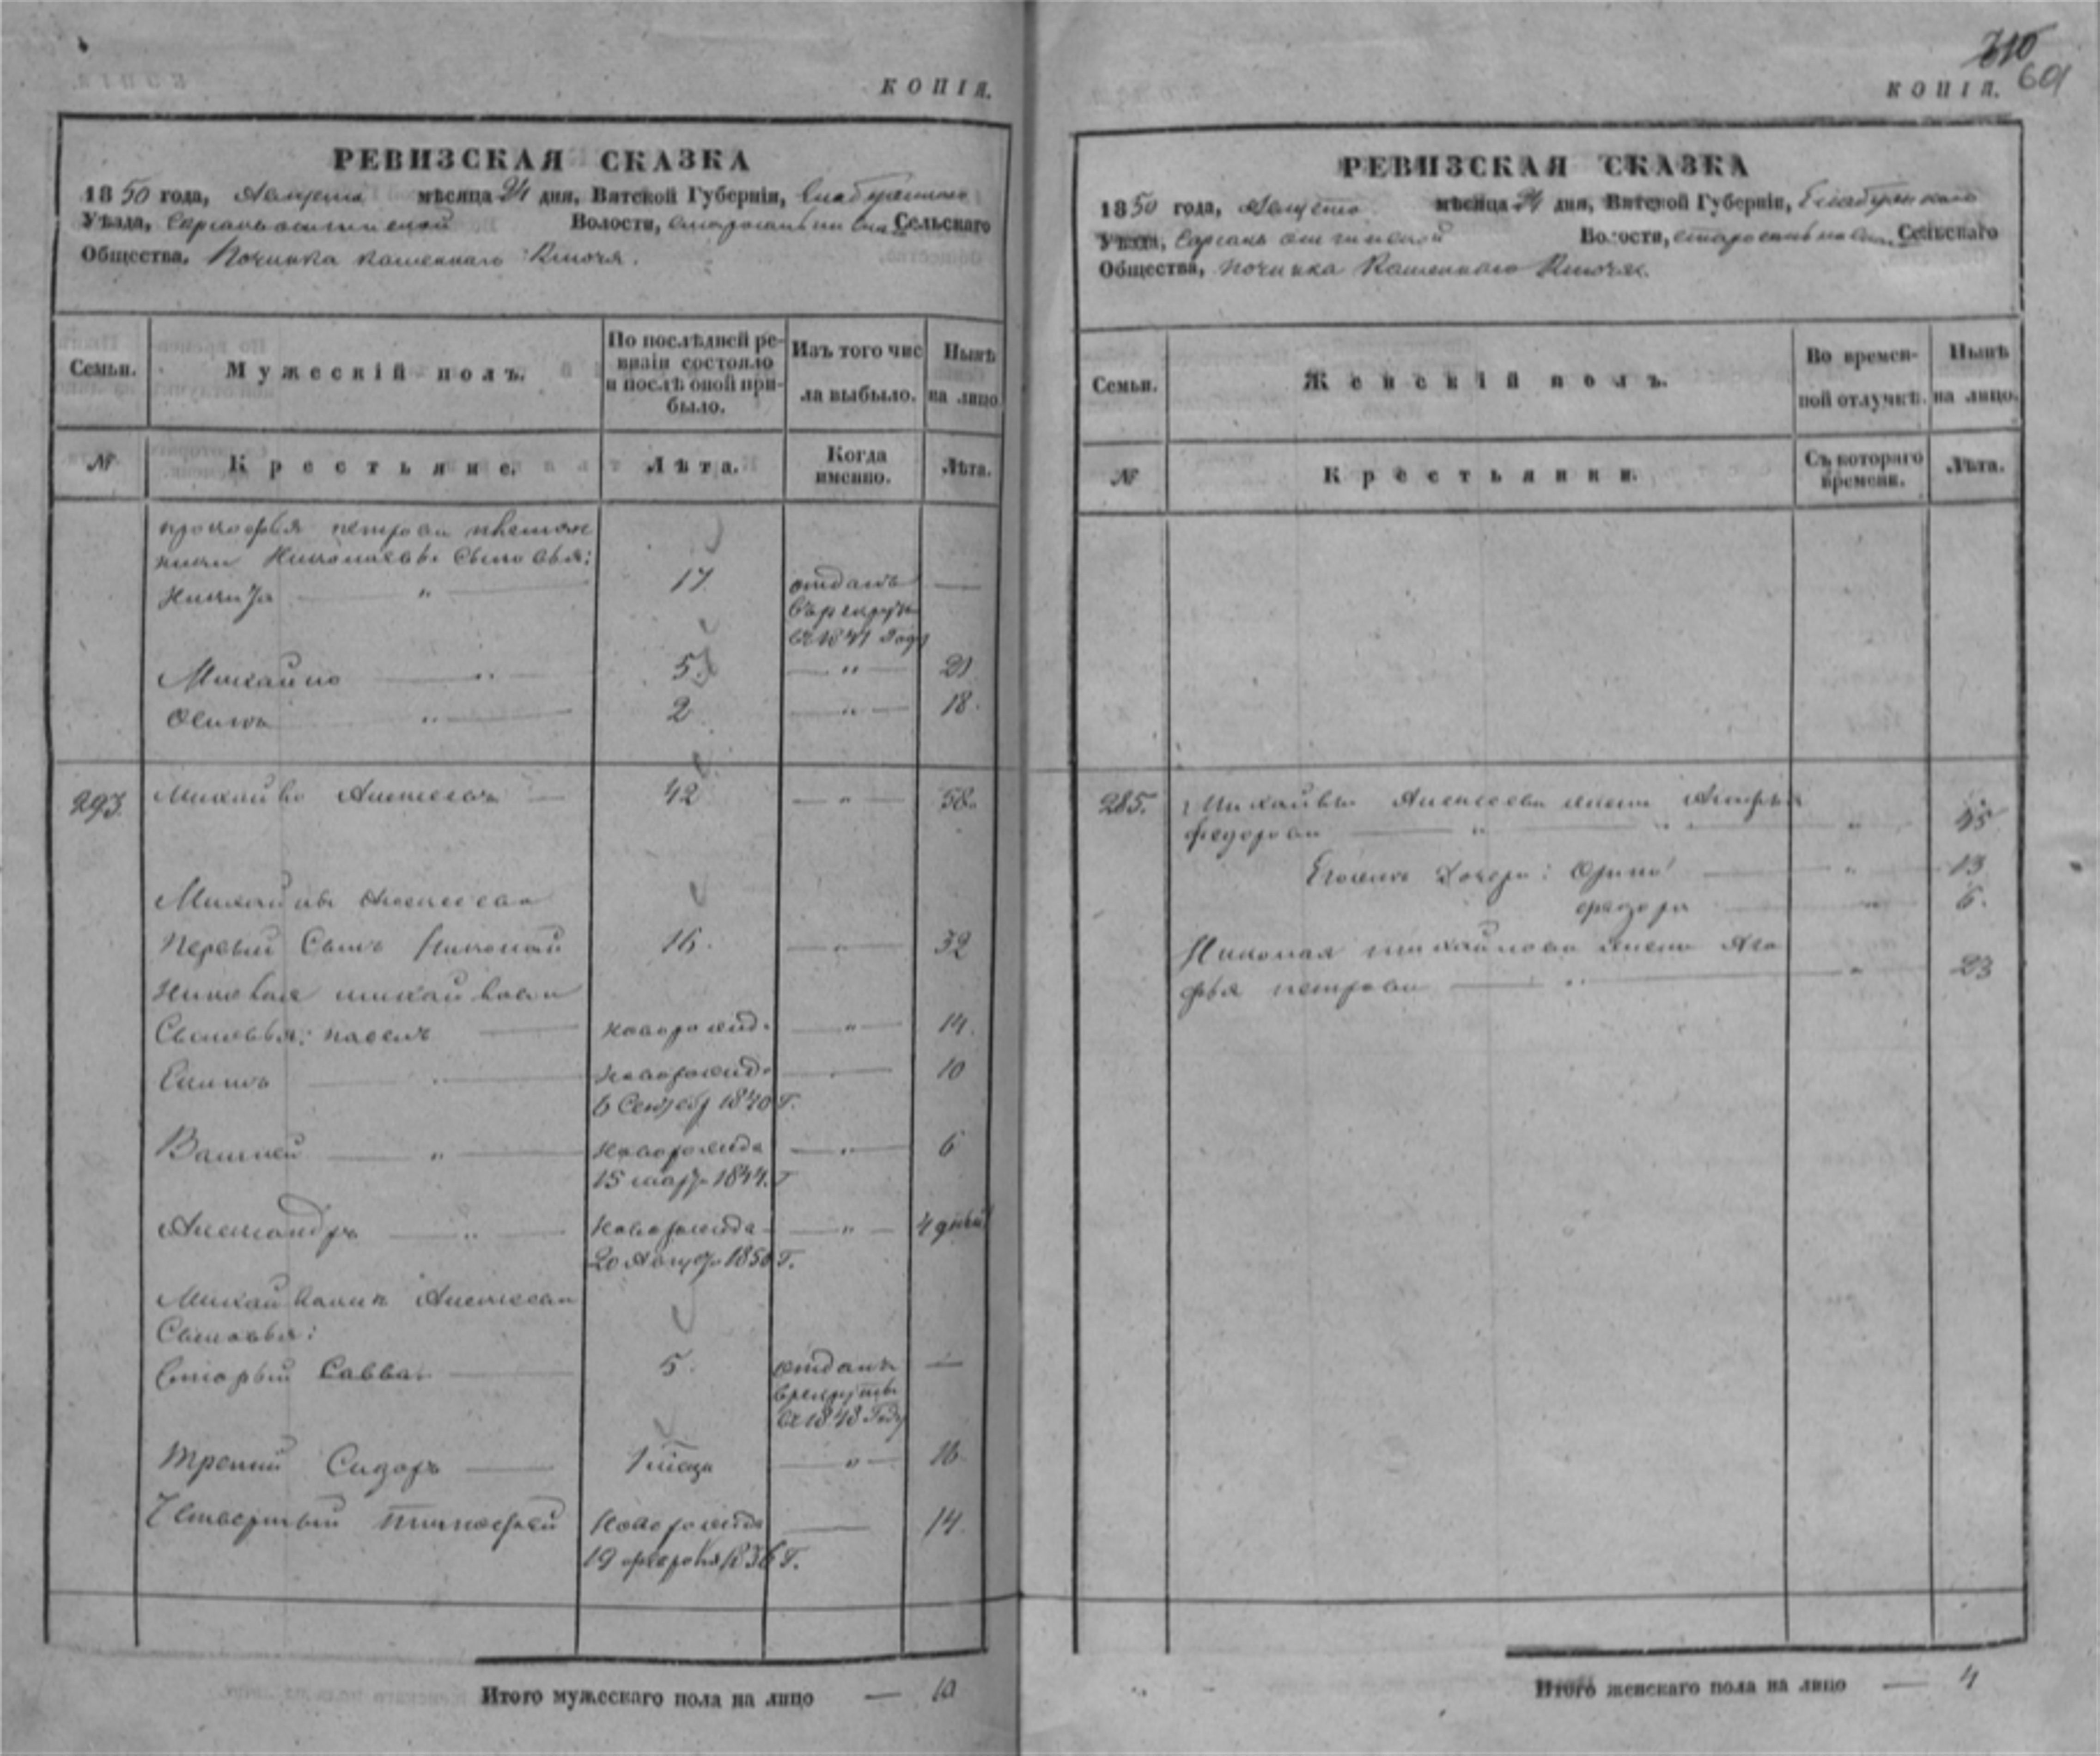 КОПІЯ.
РЕВИЗСКАЯ СКАЗКА
1850 года, Августа мѣсяца 24 дня, Вятской Губерніи, Елабужскаго
Уѣзда, Волости, Сельскаго
Общества, Починка Каменнаго Ключа.
Семьи.
Мужескій полъ.
По послѣдней ре-
визіи состояло
и послѣ оной при-
было.
Изъ того чис
ла выбыло.
Нынѣ
на лицо
№
Крестьяне.
Лѣта.
Когда
именно.
Лѣта.
Прокофья Петрова племян
ники Николаевы Сыновья:
Никита " 17 отданъ —
въ рекруты
въ 1841 Году
Михайло " 5. " 21
Осипъ " 2 " 18.
293. Михайло Алексеевъ — 42 " 58.
Михайлы Алексеева
Первый Сынъ Николай 16. " 32
Николая Михайлова
Сыновья: Павелъ новорожд. " 14.
Новорожд. 10
6 1840 Г.
Василей " Новорожд 6
15 март 1844. Г
Александръ " Новорожд " 4 дней
20 Август 1850 Г.
Алексеева
Сыновья:
Вторый Савва 5. отданъ —
в рекруты
въ 1848 Году
Третий Сидоръ — 1 " 16.
Четвертый Тимофей Новорожд — 14.
19 февраля 1836 Г.
Итого мужескаго пола на лицо — 10
310
601
КОПІЯ.
РЕВИЗСКАЯ СКАЗКА
1850 года, Августа мѣсяца 24 дня, Вятской Губерніи, Елабужскаго
Уѣзда, Волости, Сельскаго
Общества, Починка Каменнаго Ключа.
Семьи.
Женскій полъ.
Во времен-
ной отлучкѣ.
Нынѣ
на лицо.
№
Крестьянки.
Съ котораго
времени.
Лѣта.
285. Михайлы Алексеева жена
Федорова " " 45
дочери: Орина " 13
" 6.
Николая Михайлова жена Ага
фья Петрова " " 23
Итого женскаго пола на лицо — 4